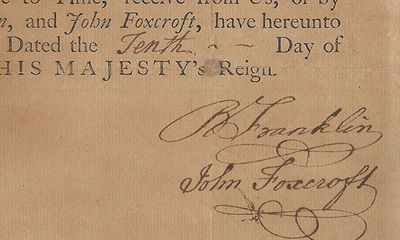 to Time, receive from Us, or by
and John Foxcroft, have hereunto
Dated the Tenth - - Day of
HIS MAJESTY's Reign.
B Franklin
John Foxcroft